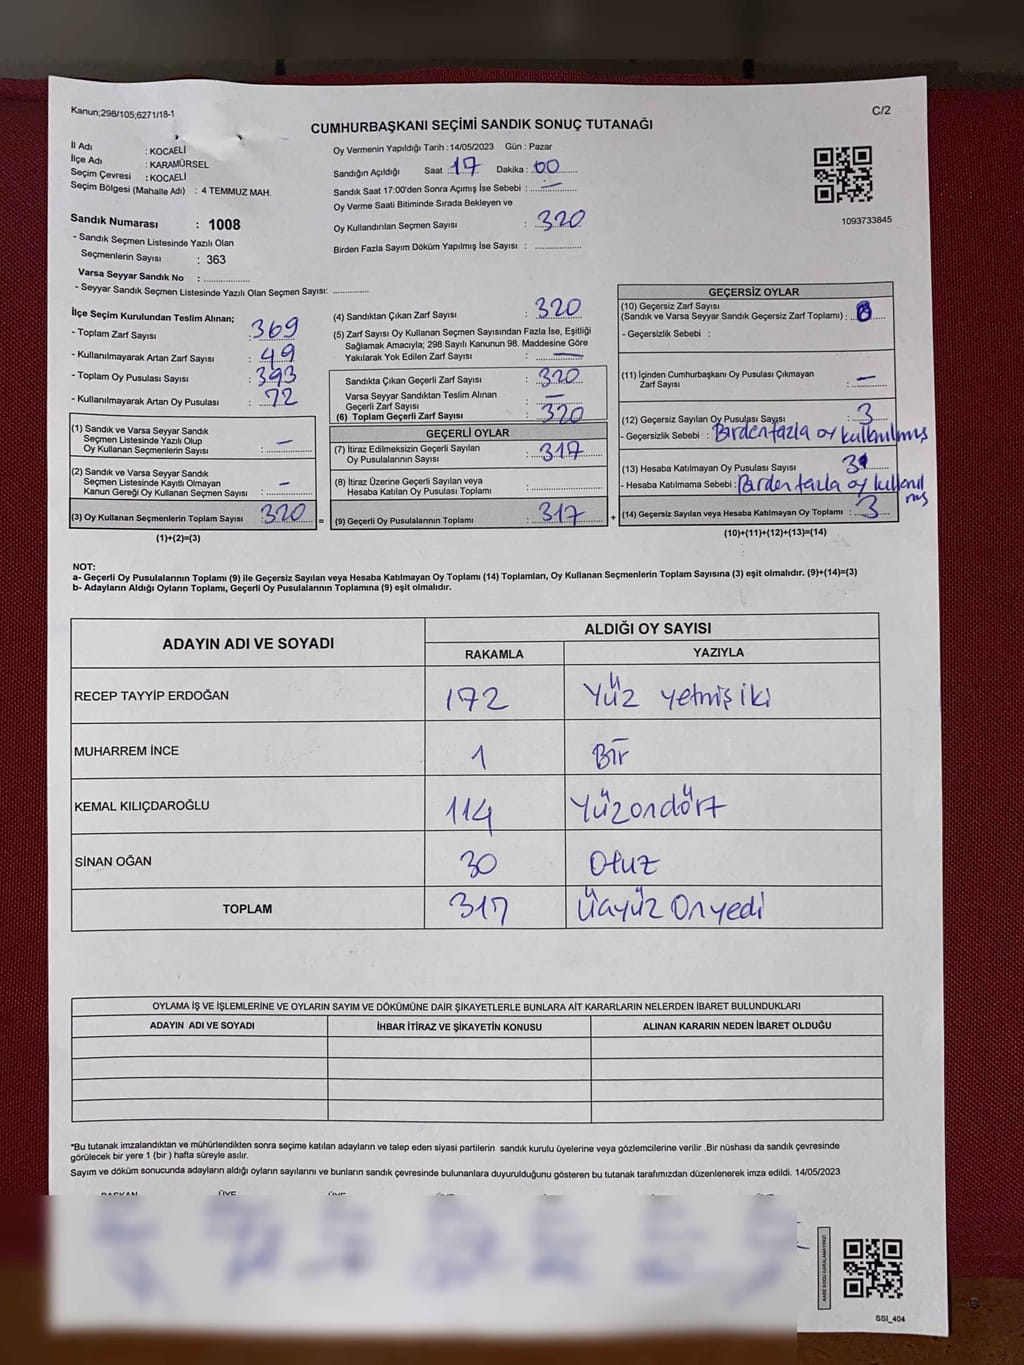 Kanun;298/105;6271/18-1
C/2
CUMHURBAŞKANI SEÇİMİ SANDIK SONUÇ TUTANAĞI
İl Adı : KOCAELİ
İlçe Adı : KARAMÜRSEL
Seçim Çevresi : KOCAELİ
Seçim Bölgesi (Mahalle Adı) : 4 TEMMUZ MAH.
Sandık Numarası : 1008
- Sandık Seçmen Listesinde Yazılı Olan
Seçmenlerin Sayısı : 363
Varsa Seyyar Sandık No : ..................
- Seyyar Sandık Seçmen Listesinde Yazılı Olan Seçmen Sayısı: .............
Oy Vermenin Yapıldığı Tarih : 14/05/2023 Gün : Pazar
Sandığın Açıldığı Saat : 17 Dakika : 00
Sandık Saat 17:00'den Sonra Açımış İse Sebebi : —
Oy Verme Saati Bitiminde Sırada Bekleyen ve
Oy Kullandırılan Seçmen Sayısı : 320
Birden Fazla Sayım Döküm Yapılmış İse Sayısı : ..................
1093733845
İlçe Seçim Kurulundan Teslim Alınan;
- Toplam Zarf Sayısı : 369
- Kullanılmayarak Artan Zarf Sayısı : 49
- Toplam Oy Pusulası Sayısı : 393
- Kullanılmayarak Artan Oy Pusulası : 72
(1) Sandık ve Varsa Seyyar Sandık
Seçmen Listesinde Yazılı Olup
Oy Kullanan Seçmenlerin Sayısı : —
(2) Sandık ve Varsa Seyyar Sandık
Seçmen Listesinde Kayıtlı Olmayan
Kanun Gereği Oy Kullanan Seçmen Sayısı : —
(3) Oy Kullanan Seçmenlerin Toplam Sayısı : 320
(1)+(2)=(3)
=
(4) Sandıktan Çıkan Zarf Sayısı : 320
(5) Zarf Sayısı Oy Kullanan Seçmen Sayısından Fazla İse, Eşitliği
Sağlamak Amacıyla; 298 Sayılı Kanunun 98. Maddesine Göre
Yakılarak Yok Edilen Zarf Sayısı : —
Sandıkta Çıkan Geçerli Zarf Sayısı : 320
Varsa Seyyar Sandıktan Teslim Alınan
Geçerli Zarf Sayısı : —
(6) Toplam Geçerli Zarf Sayısı : 320
GEÇERLİ OYLAR
(7) İtiraz Edilmeksizin Geçerli Sayılan
Oy Pusulalarının Sayısı : 317
(8) İtiraz Üzerine Geçerli Sayılan veya
Hesaba Katılan Oy Pusulası Toplamı : ..................
(9) Geçerli Oy Pusulalarının Toplamı : 317
+
GEÇERSİZ OYLAR
(10) Geçersiz Zarf Sayısı
(Sandık ve Varsa Seyyar Sandık Geçersiz Zarf Toplamı) :
- Geçersizlik Sebebi :
(11) İçinden Cumhurbaşkanı Oy Pusulası Çıkmayan
Zarf Sayısı : —
(12) Geçersiz Sayılan Oy Pusulası Sayısı : 3
- Geçersizlik Sebebi : Birden fazla oy kullanılmış
(13) Hesaba Katılmayan Oy Pusulası Sayısı 3
- Hesaba Katılmama Sebebi : Birden fazla oy kullanıl
mış
(14) Geçersiz Sayılan veya Hesaba Katılmayan Oy Toplamı : 3
(10)+(11)+(12)+(13)=(14)
NOT:
a- Geçerli Oy Pusulalarının Toplamı (9) ile Geçersiz Sayılan veya Hesaba Katılmayan Oy Toplamı (14) Toplamları, Oy Kullanan Seçmenlerin Toplam Sayısına (3) eşit olmalıdır. (9)+(14)=(3)
b- Adayların Aldığı Oyların Toplamı, Geçerli Oy Pusulalarının Toplamına (9) eşit olmalıdır.
ADAYIN ADI VE SOYADI
ALDIĞI OY SAYISI
RAKAMLA YAZIYLA
RECEP TAYYİP ERDOĞAN 172 Yüz yetmiş iki
MUHARREM İNCE 1 Bir
KEMAL KILIÇDAROĞLU 114 Yüzondört
SİNAN OĞAN 30 Otuz
TOPLAM 317 Üçyüz Onyedi
OYLAMA İŞ VE İŞLEMLERİNE VE OYLARIN SAYIM VE DÖKÜMÜNE DAİR ŞİKAYETLERLE BUNLARA AİT KARARLARIN NELERDEN İBARET BULUNDUKLARI
ADAYIN ADI VE SOYADI İHBAR İTİRAZ VE ŞİKAYETİN KONUSU ALINAN KARARIN NEDEN İBARET OLDUĞU
*Bu tutanak imzalandıktan ve mühürlendikten sonra seçime katılan adayların ve talep eden siyasi partilerin sandık kurulu üyelerine veya gözlemcilerine verilir .Bir nüshası da sandık çevresinde
görülecek bir yere 1 (bir ) hafta süreyle asılır.
Sayım ve döküm sonucunda adayların aldığı oyların sayılarını ve bunların sandık çevresinde bulunanlara duyurulduğunu gösteren bu tutanak tarafımızdan düzenlenerek imza edildi. 14/05/2023
BAŞKAN ÜYE ÜYE
KARE KODU KARALAMAYINIZ!
SSI_404